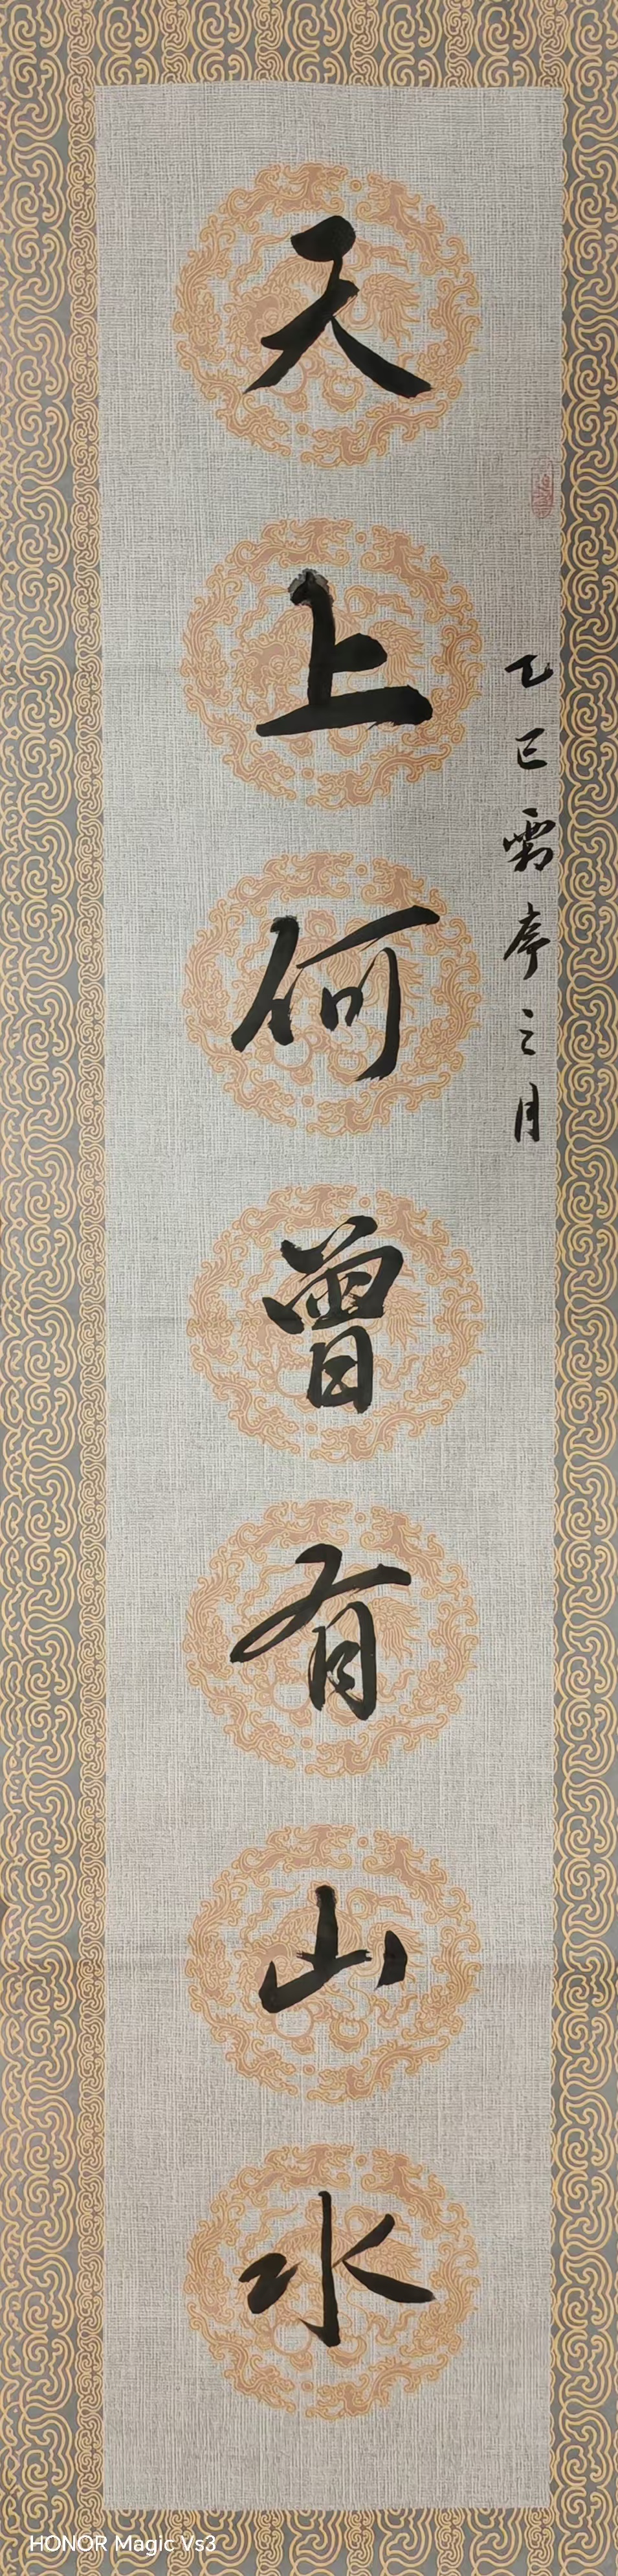 乙巳霜序之月
天上何曾有山水
HONOR Magic Vs3